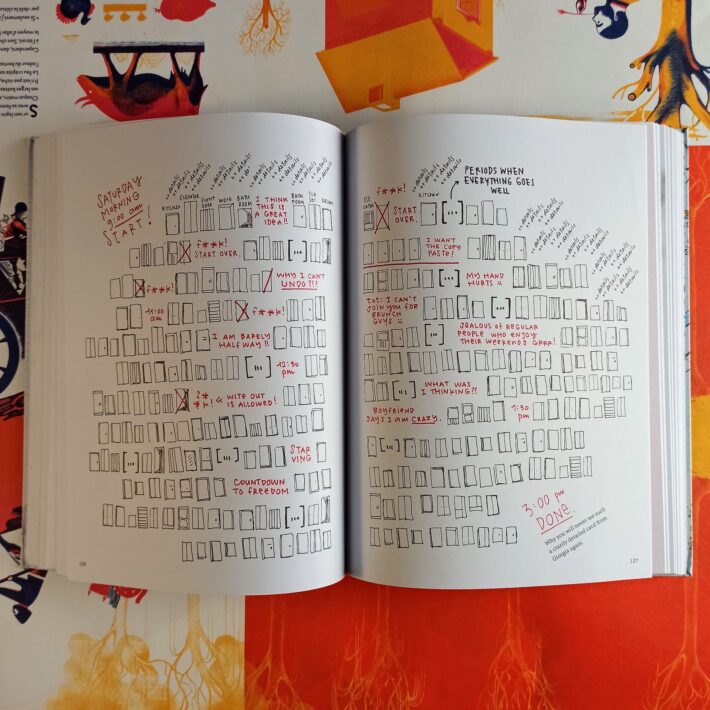 SATURDAY
MORNING
9:00 am
START!
details
details
details
details
details
details
details
details
details
KITCHEN
ELEVATOR
FRONT
DOOR
WORK
BATH
ROOM
I THINK
THIS IS
A GREAT
IDEA!!
BATH
ROOM
CLO
SET
f***!
START OVER.
[...]
f***!
WHY I CAN'T
UNDO?!?
11:00
am
f***!
I AM BARELY
HALF WAY!!
[...]
12:30
pm
f*
**!
« WITE OUT
IS ALLOWED!
[...]
[...]
STAR
VING
COUNTDOWN
TO FREEDOM
[...]
126
f***!
details
details
details
details
details
PERIODS WHEN
EVERYTHING GOES
WELL
START
OVER.
KITCHEN
[...]
details
details
details
details
details
details
details
details
I WANT
THE COPY
PASTE!
[...]
MY HAND
HURTS
txt: I CAN'T
JOIN YOU FOR
BRUNCH
GUYS
[...]
JEALOUS OF REGULAR
PEOPLE WHO ENJOY
THEIR WEEKENDS GRRR!
[...]
WHAT WAS
I THINKING?!
BOYFRIEND
SAYS I AM CRAZY.
1:30
pm
[...]
3:00 pm
DONE.
Why you will never see such
a crazily detailed card from
Giorgia again.
127